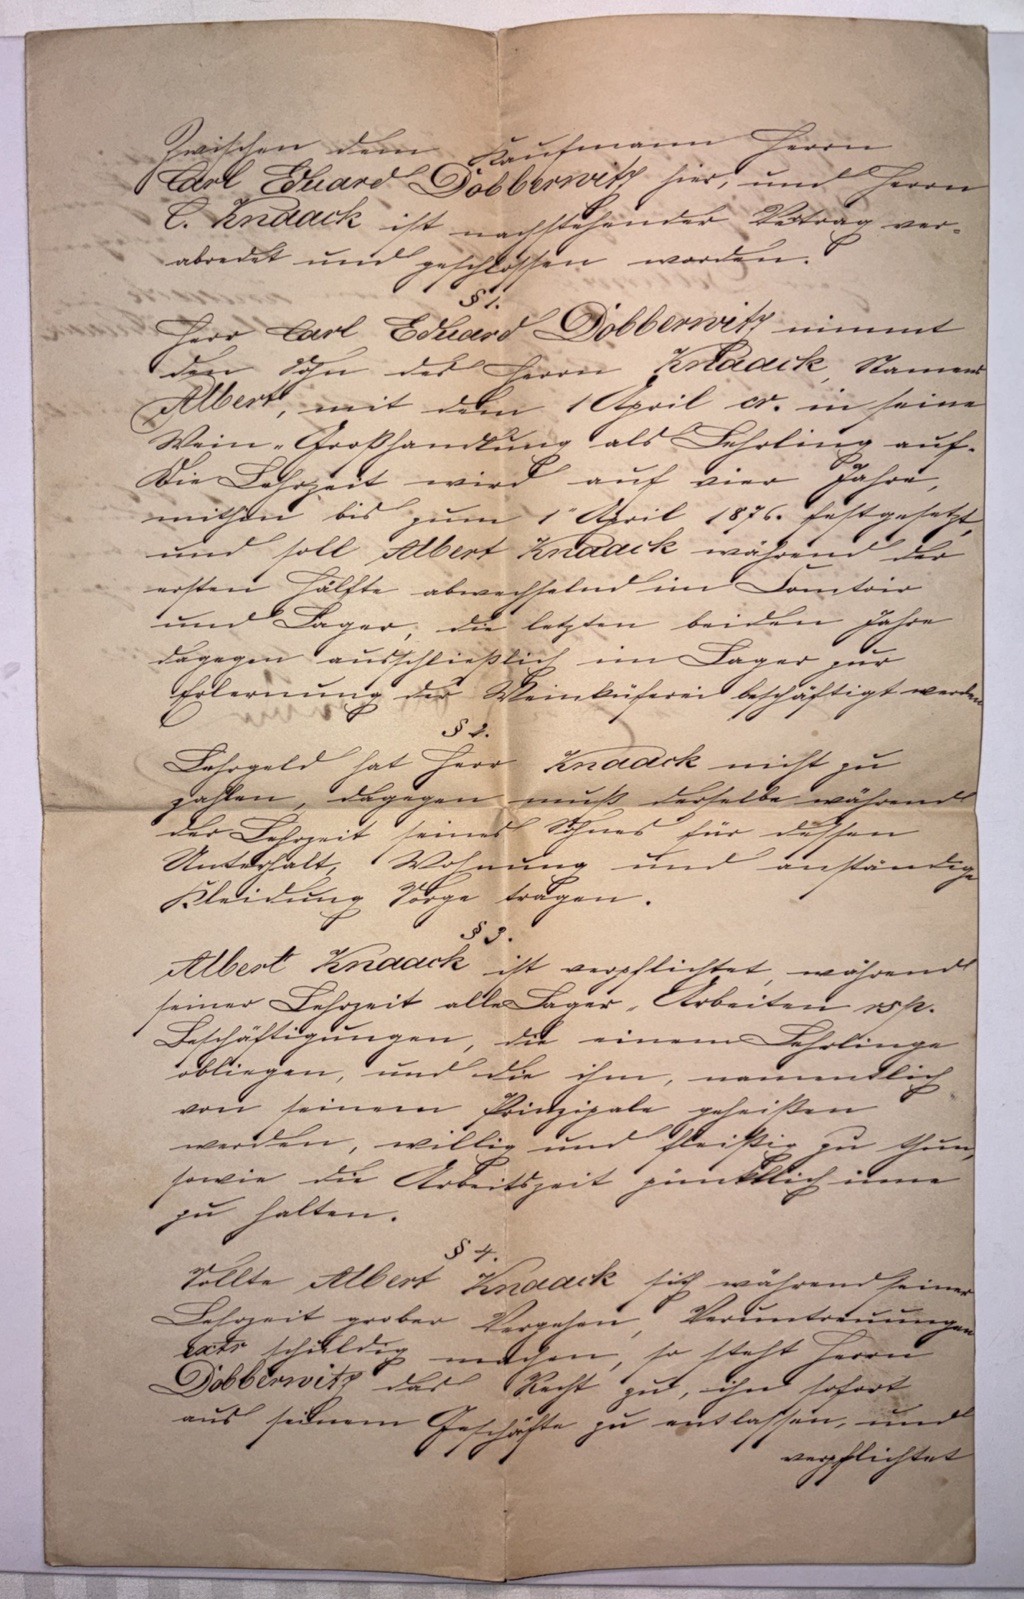 Zwischen dem Kaufmann Herrn
Carl Eduard Dobberwitz hier, und Herrn
C. Knaack ist nachstehender Vertrag ver-
abredet und geschlossen worden.
§ 1.
Herr Carl Eduard Dobberwitz nimmt
den Sohn des Herrn Knaack, Namens
Albert, mit dem 1 April cr. in seine
Wein-Großhandlung als Lehrling auf.
Die Lehrzeit wird auf vier Jahre,
mithin bis zum 1 April 1876. festgesetzt,
und soll Albert Knaack während der
ersten Hälfte abwechselnd im Comtoir
und Lager, die letzten beiden Jahre
dagegen ausschließlich im Lager zur
Erlernung der Weinküferei beschäftigt werden
§ 2.
Lehrgeld hat Herr Knaack nicht zu
zahlen, dagegen muß derselbe während
der Lehrzeit seines Sohnes für dessen
Unterhalt, Wohnung und anständige
Kleidung Sorge tragen.
§ 3.
Albert Knaack ist verpflichtet, während
seiner Lehrzeit alle Lager-Arbeiten resp.
Beschäftigungen, die einem Lehrlinge
obliegen, und die ihm, namentlich
von seinem Prinzipale geheißen
werden, willig und fleißig zu thun,
sowie die Arbeitszeit pünktlich inne
zu halten.
§ 4.
Sollte Albert Knaack sich während seiner
Lehrzeit grober Vergehen, Veruntreuungen
schuldig machen, so steht Herrn
Dobberwitz das Recht zu, ihn sofort
aus seinem Geschäfte zu entlassen, und
verpflichtet